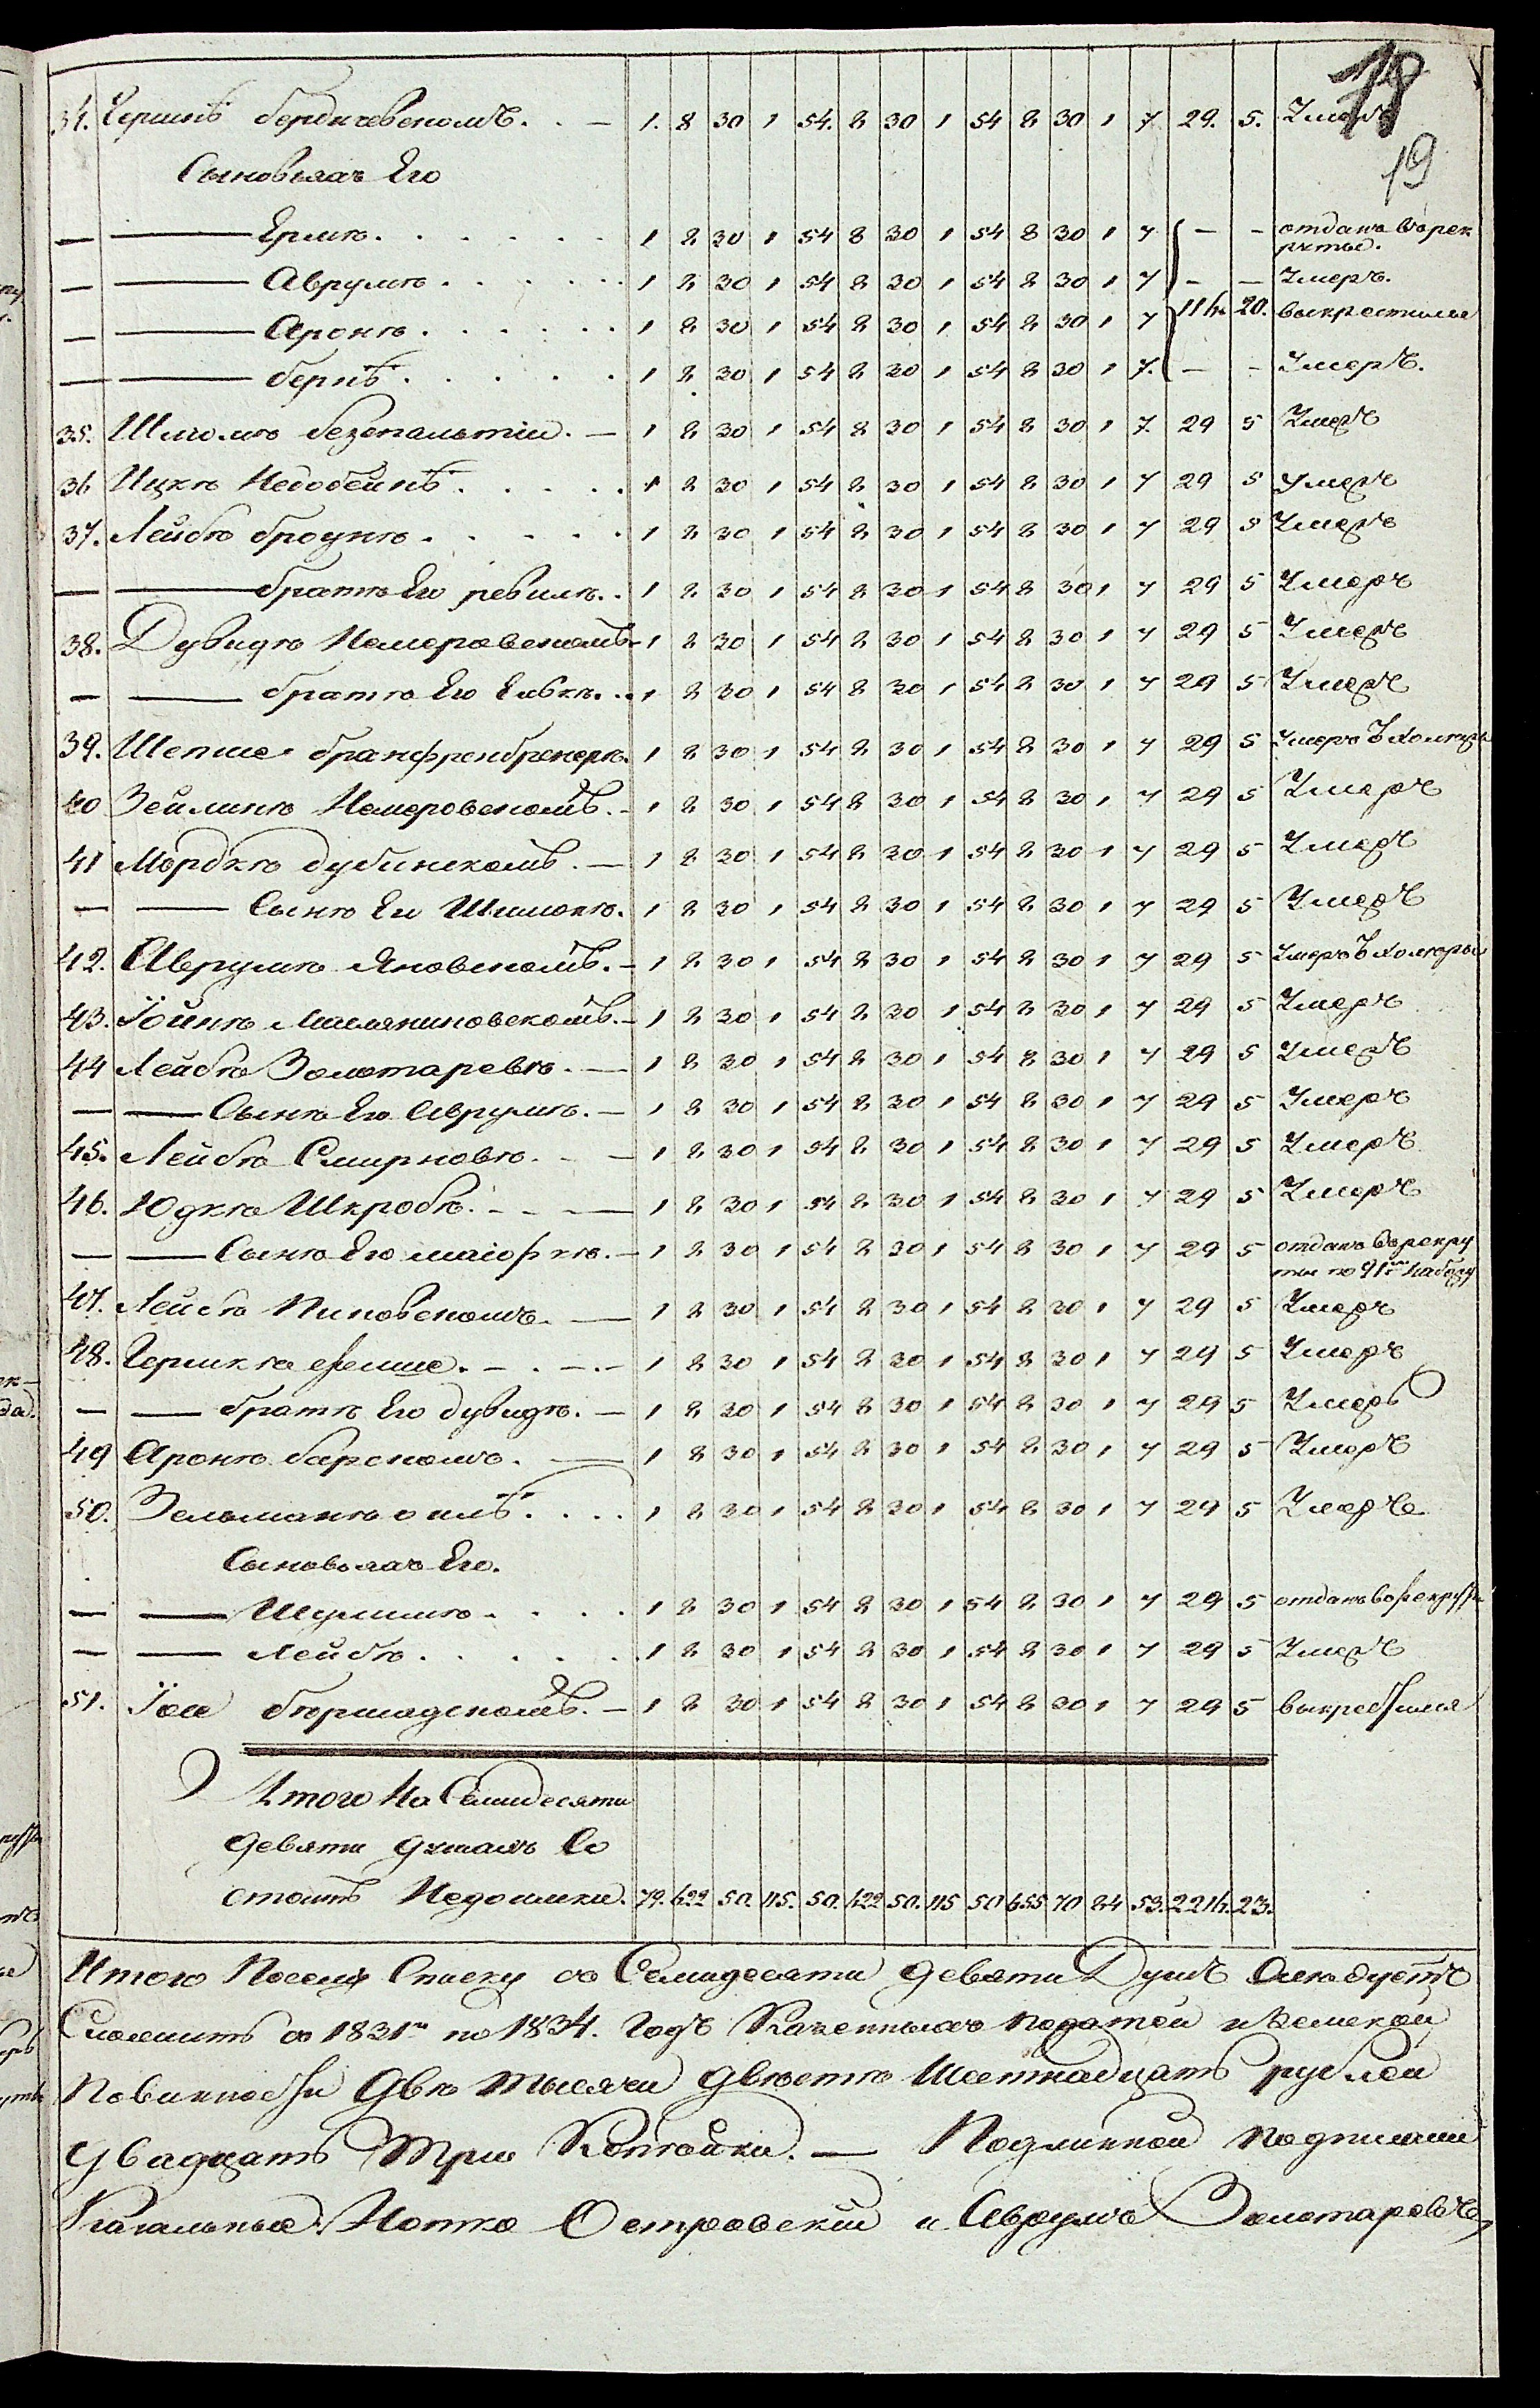 18
19
34. Гершнѣ бердичевскомъ. . — 1. 8 30 1 54. 8 30 1 54 8 30 1 7 29. 5. Умеръ
Сыновьяхъ Его
— — Ермъ. . . . . . 1 8 30 1 54 8 30 1 54 8 30 1 7 — — отданъ Ворек
руты.
— — Аврумъ . . . . . 1 8 30 1 54 8 30 1 54 8 30 1 7 — — Умеръ.
— — Аронъ . . . . . 1 8 30 1 54 8 30 1 54 8 30 1 7 114. 20. выкрестился
— — беркѣ . . . . . 1 8 30 1 54 8 30 1 54 8 30 1 7. — — Умеръ.
35. Шлiомъ безпальтiи. — 1 8 30 1 54 8 30 1 54 8 30 1 7. 29 5 Умеръ
36 Ицкъ Недобейкѣ . . . . 1 8 30 1 54 8 30 1 54 8 30 1 7 29 5 умеръ
37. Лейбѣ броукъ . . . . . 1 8 30 1 54 8 30 1 54 8 30 1 7 29 5 Умеръ
— — братѣ Его ревилъ. . 1 8 30 1 54 8 30 1 54 8 30 1 7 29 5 Умеръ
38. Дувидѣ Немеровскомъ - 1 8 30 1 54 8 30 1 54 8 30 1 7 29 5 Умеръ
— — братѣ Его Елькѣ. . . 1 8 30 1 54 8 30 1 54 8 30 1 7 29 5 Умеръ
39. Шепше бранфренбренерѣ. 1 8 30 1 54 8 30 1 54 8 30 1 7 29 5 Умеръ Ъ Холеры
40 Зейлинѣ Немеровскомъ. - 1 8 30 1 54 8 30 1 54 8 30 1 7 29 5 Умеръ
41 Мордкѣ дубинскомъ. — 1 8 30 1 54 8 30 1 54 8 30 1 7 29 5 Умеръ
— — Сынѣ Ею Шимонѣ. 1 8 30 1 54 8 30 1 54 8 30 1 7 29 5 Умеръ
42. Аврумѣ Яновскомъ. - 1 8 30 1 54 8 30 1 54 8 30 1 7 29 5 Умеръ Ъ Холеры
43. Іойнѣ Масляниновскомъ. - 1 8 30 1 54 8 30 1 54 8 30 1 7 29 5 Умеръ
44 Лейбѣ Золотаревѣ. — 1 8 30 1 54 8 30 1 54 8 30 1 7 29 5 Умеръ
— — Сынѣ Его Аврумѣ. — 1 8 30 1 54 8 30 1 54 8 30 1 7 29 5 Умеръ
45. Лейбѣ Смирновѣ. - - 1 8 30 1 54 8 30 1 54 8 30 1 7 29 5 Умеръ
46. Юдкѣ Шкробѣ. - - — 1 8 30 1 54 8 30 1 54 8 30 1 7 29 5 Умеръ
— — Сынѣ Его маiоркѣ. - 1 8 30 1 54 8 30 1 54 8 30 1 7 29 5 отданъ Ворекру
ты по 91му набору
47. Лейбѣ Пиковскомъ. — 1 8 30 1 54 8 30 1 54 8 30 1 7 29 5 Умеръ
48. Гершкѣ - . - . - 1 8 30 1 54 8 30 1 54 8 30 1 7 29 5 Умеръ
— — братѣ Его дувидѣ. — 1 8 30 1 54 8 30 1 54 8 30 1 7 29 5 Умеръ
49 Аронѣ барскомъ. — 1 8 30 1 54 8 30 1 54 8 30 1 7 29 5 Умеръ
50. Зельманѣ . . . . 1 8 30 1 54 8 30 1 54 8 30 1 7 29 5 Умерѣ
Сыновьяхъ Его.
— — Шулимѣ . . . . 1 8 30 1 54 8 30 1 54 8 30 1 7 29 5 отданъ Ворекруты
— — Лейбѣ . . . . . . 1 8 30 1 54 8 30 1 54 8 30 1 7 29 5 Умеръ
51. Іос бѣршадскомъ. — 1 8 30 1 54 8 30 1 54 8 30 1 7 29 5 выкрестился
Итого На Семидесяти
девяти душахъ Со
стоитъ Недоимки. 79. 622 50. 115. 50. 622 50. 115 50 655 70 84 53. 2216. 23.
Итого Посему Списку со Семидесяти девяти Душъ Слѣдуетъ
Сложить со 1831го по 1834. Годъ Казенныхъ податей и Земской
Повинности Двѣ тысячи двѣстѣ Шестнадцать рублей
двадцать Три Копѣйки. — Подлинной подписали
Кагальные: Нотко Островскiй и Аврумъ Золотаревъ,